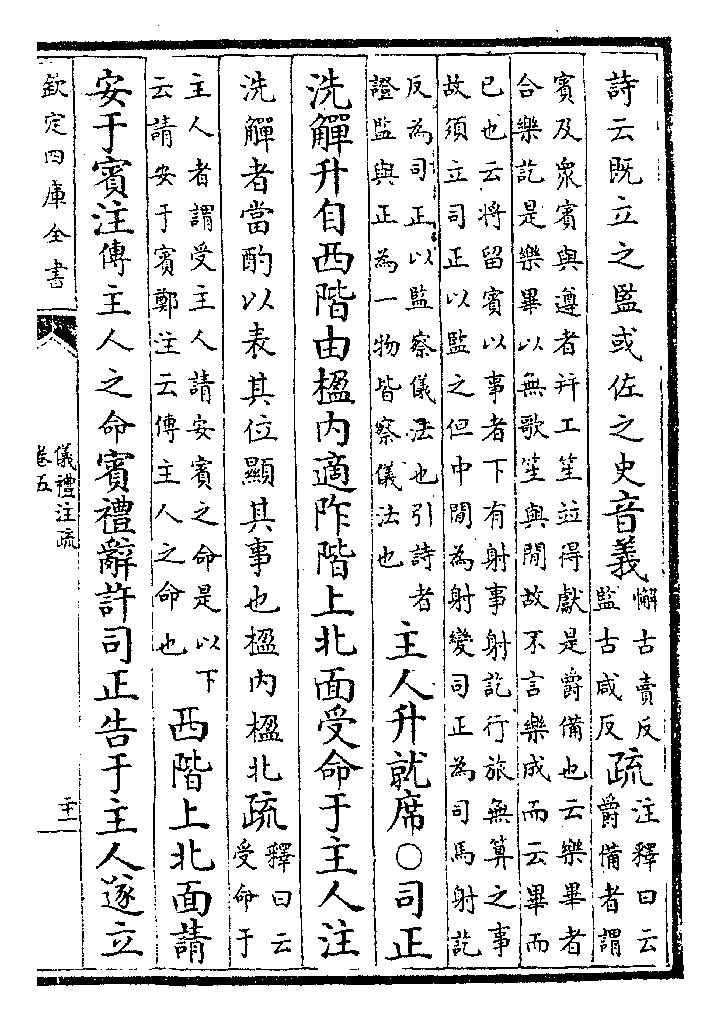 詩云既立之監或佐之史音義懈古賣反監古咸反疏注釋曰云爵備者謂
賓及衆賓與遵者幷工笙並得獻是爵備也云樂畢者
合樂訖是樂畢以無歌笙與閒故不言樂成而云畢而
已也云將留賓以事者下有射事射訖行旅無算之事
故須立司正以監之但中閒為射變司正為司馬射訖
反為司正以監察儀法也引詩者
證監與正為一物皆察儀法也
主人升就席○司正
洗觶升自西階由楹内適阼階上北面受命于主人注
洗觶者當酌以表其位顯其事也楹内楹北疏釋曰云受命于
主人者謂受主人請安賓之命是以下
云請安于賓鄭注云傳主人之命也
西階上北面請
安于賓注傳主人之命賓禮辭許司正告于主人遂立
欽定四庫全書
儀禮注疏
卷五
二十一